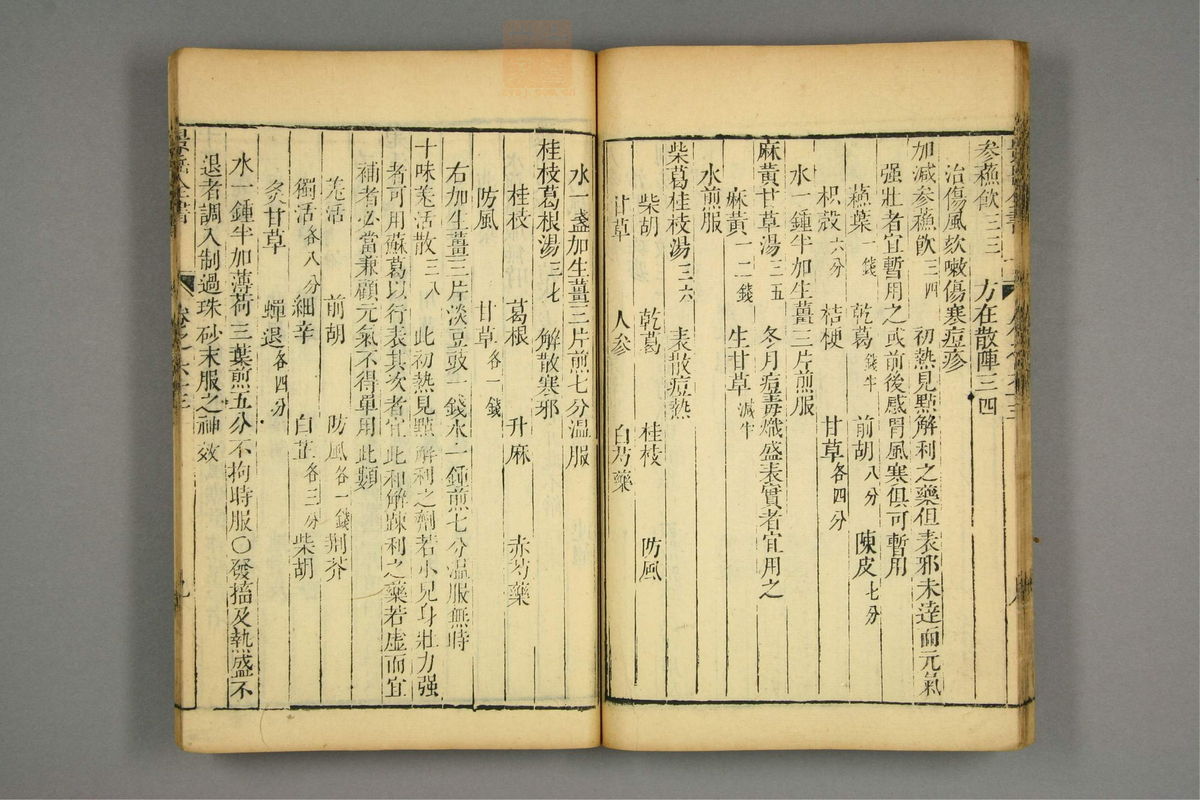 參蘇飲三三 方在散陣三四
治傷風欬嗽傷寒痘疹
加減參蘇飲三四 初熱見點解利之藥但表邪未達而元氣
强壯者宜暫用之或前後感冒風寒俱可暫用
蘇葉一錢 乾葛錢半 前胡八分 陳皮七分
枳殼六分 桔梗 甘草各四分
水一鍾半加生薑三片煎服
麻黃甘草湯三五 冬月痘毒熾盛表實者宜用之
麻黃一二錢 生甘草減半
水煎服
柴葛桂枝湯三六 表散痘熱
柴胡 乾葛 桂枝 防風
甘草 人參 白芍藥
水一盞加生薑三片煎七分温服
桂枝葛根湯三七 解散寒邪
桂枝 葛根 升麻 赤芍藥
防風 甘草各一錢
右加生薑三片淡豆豉一錢水二鍾煎七分温服無時
十味羌活散三八 此初熱見點解利之劑若小兒身壯力强
者可用蘇葛以行表其次者宜此和解踈利之藥若虛而宜
補者必當兼顧元氣不得單用此類
羌活 前胡 防風各一錢 荆芥
獨活各八分 細辛 白芷各三分 柴胡
炙甘草 蟬退各四分
水一鍾半加薄荷三葉煎五分不拘時服○發搐及熱盛不
退者調入制過珠砂末服之神效
景岳全書 卷之六十三 九